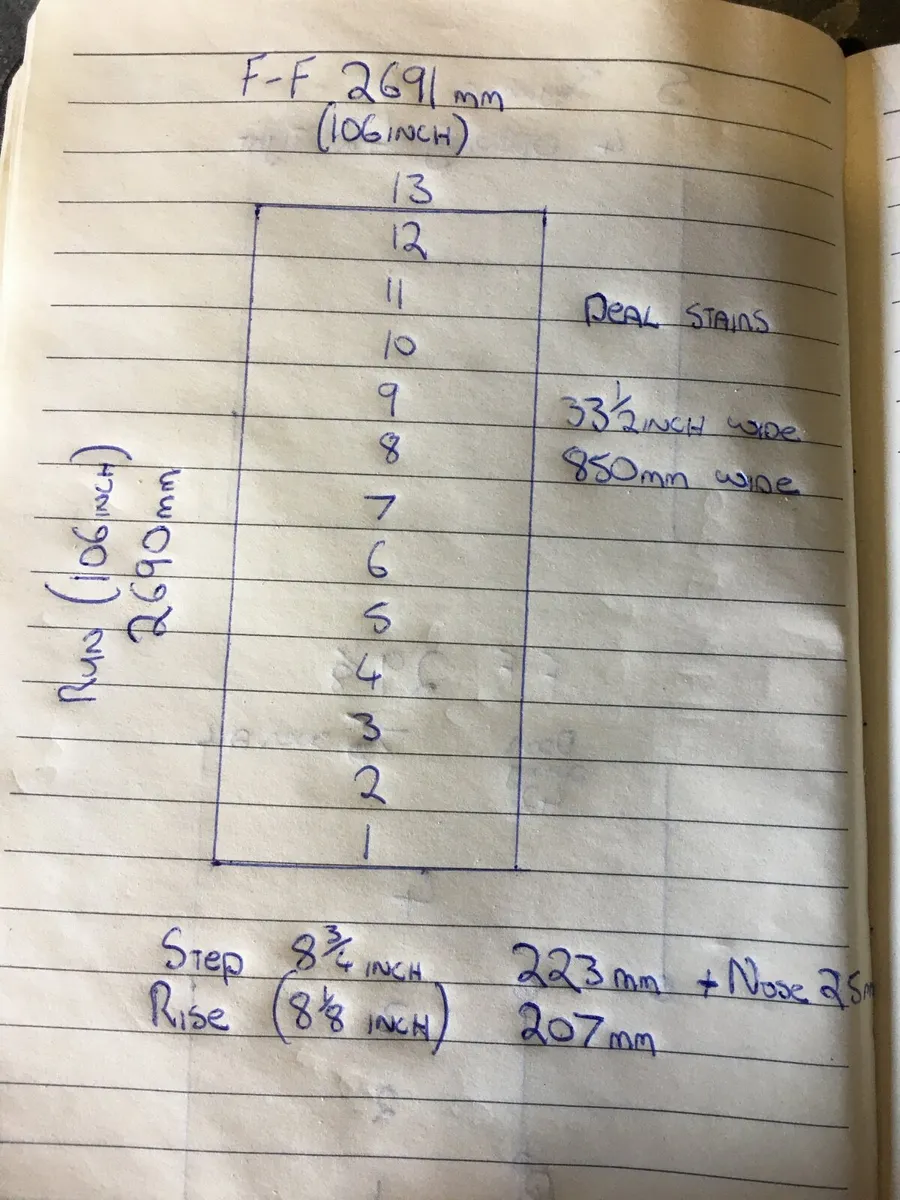 F-F 2691 mm
(106 INCH)
13
12
11
10
9
8
7
6
5
4
3
2
1
DEAL STAIRS
33 1/2 INCH WIDE
850mm WIDE
RUN (106 INCH)
2690mm
STEP 8 3/4 INCH 223mm + NOSE 25m
RISE (8 1/8 INCH) 207mm